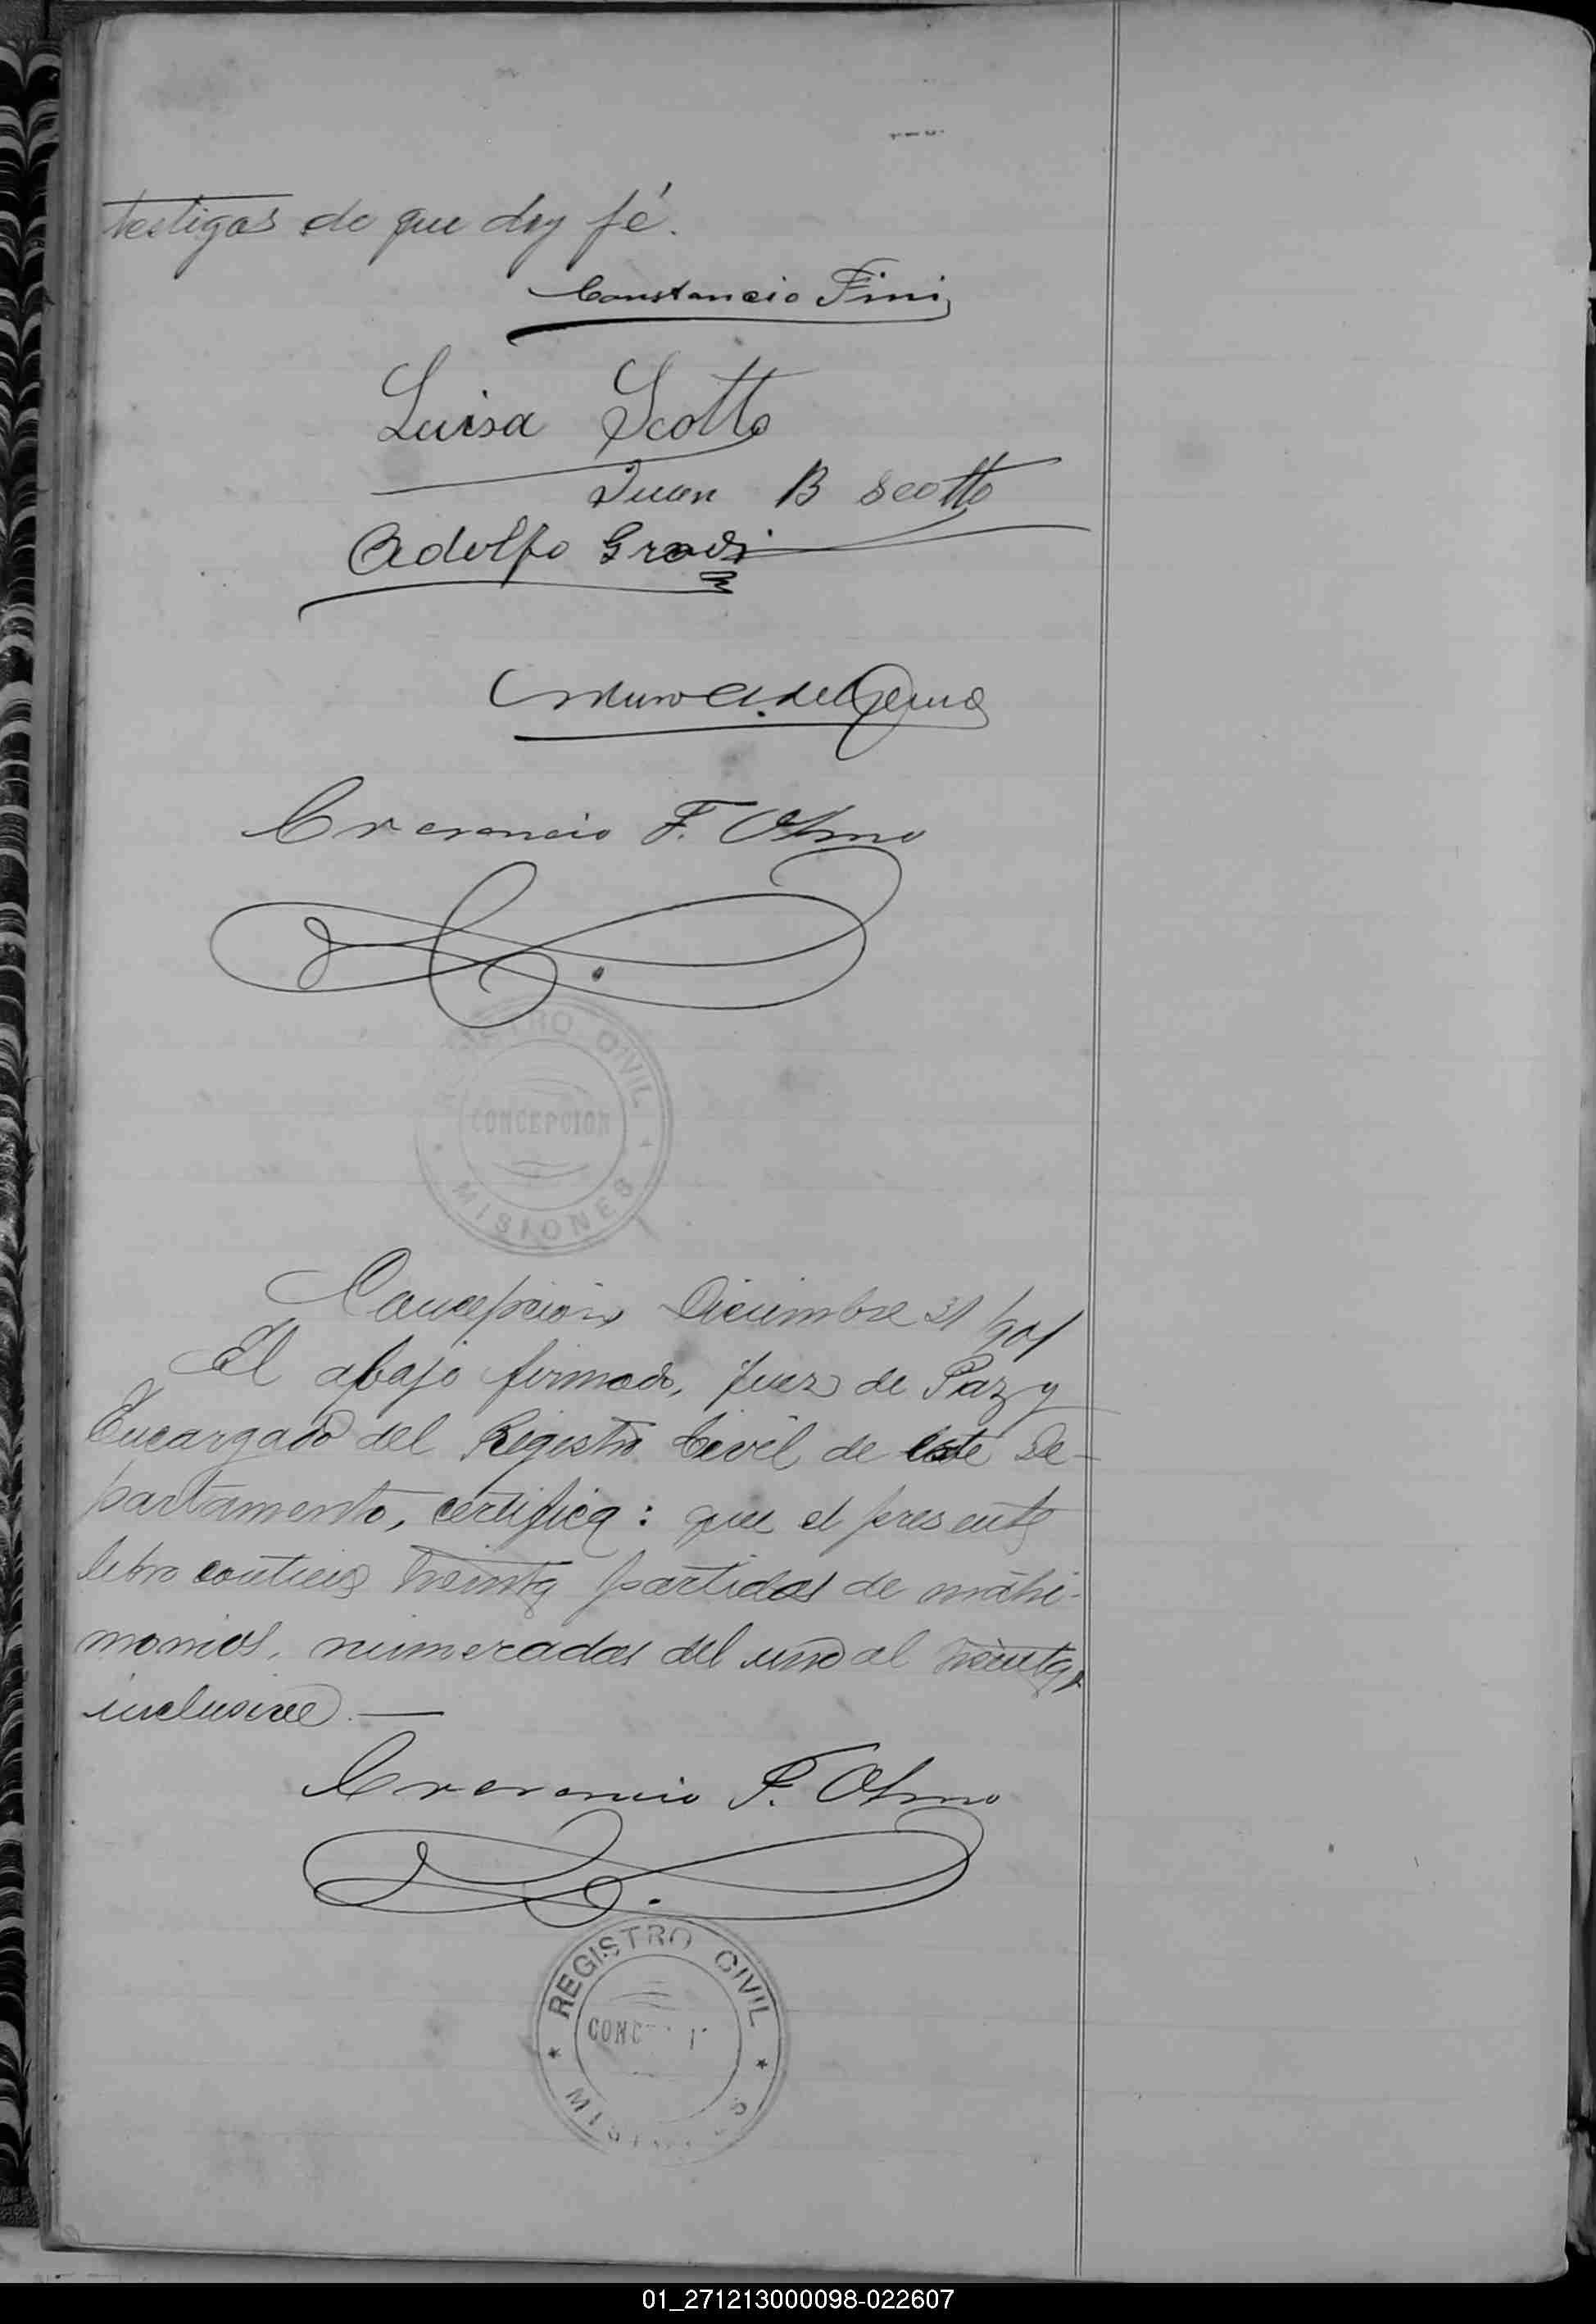 testigos de que doy fé.
Constancio Fini
Luisa Scotto
Juan B Scotto
Adolfo
F. Olmo
REGISTRO CIVIL
CONCEPCION
MISIONES
Concepcion Diciembre 31/901
El abajo firmado, Juez de Paz y
Encargado del Registro Civil de este De-
partamento, certifica: que el presente
libro contiene treinta partidas de matri-
monios, numeradas del uno al treinta,
inclusive. —
F. Olmo
REGISTRO CIVIL
01_271213000098-022607